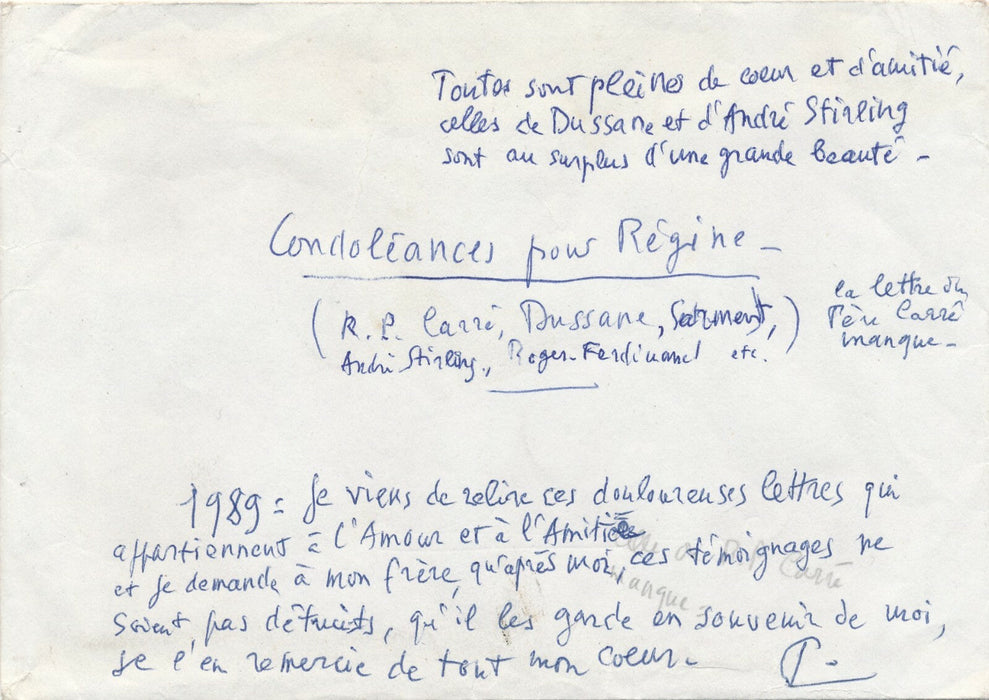 Toutes sont pleines de coeur et d'amitié,
celles de Dussane et d'André Stirling
sont au surplus d'une grande beauté -
Condoléances pour Régine -
(R.P. Carré, Dussane, Sarment,)
André Stirling, Roger-Ferdinand etc.
la lettre du
Père Carré
manque -
1989 = Je viens de relire ces douloureuses lettres qui
appartiennent à l'Amour et à l'Amitié
et je demande à mon frère, qu'après moi, ces témoignages ne
soient pas détruits, qu'il les garde en souvenir de moi,
je l'en remercie de tout mon coeur -
R.P. Carré
manque